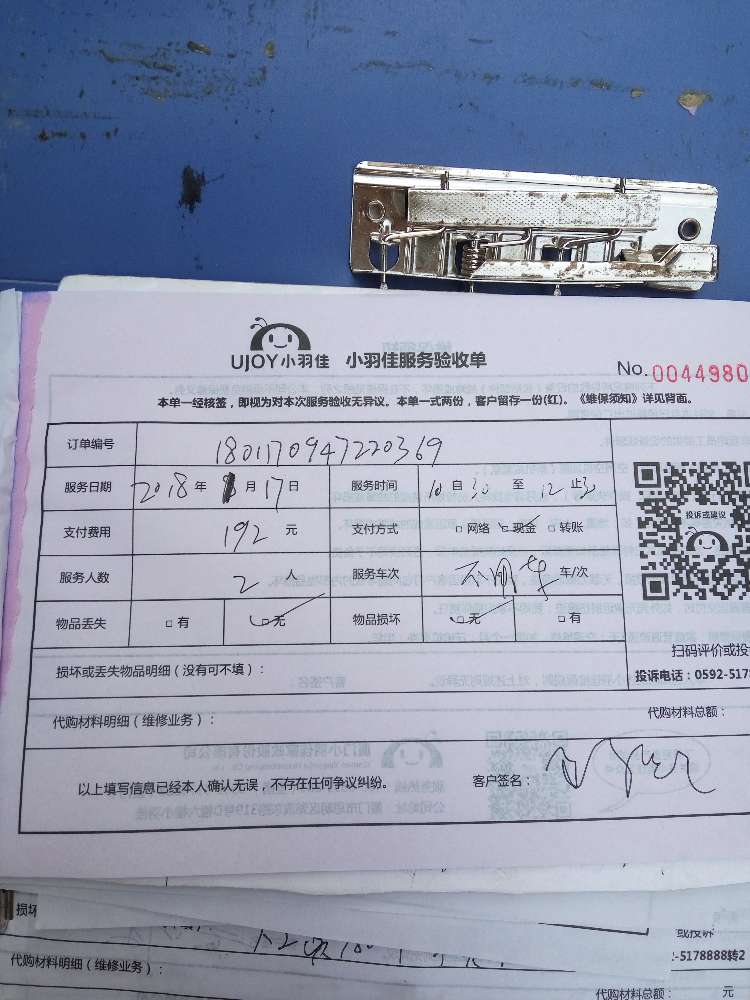 UJOY小羽佳 小羽佳服务验收单
No. 0044980
本单一经核签，即视为对本次服务验收无异议。本单一式两份，客户留存一份(红)。《维保须知》详见背面。
订单编号 1801170947220369
服务日期 2018年 月17日 服务时间 10自30至12止
支付费用 192元 支付方式 □网络 □现金 □转账
服务人数 2人 服务车次 不用车 车/次
物品丢失 □有 □无 物品损坏 □无 □有
投诉或建议
扫码评价或投
投诉电话：0592-517
损坏或丢失物品明细（没有可不填）：
代购材料明细（维修业务）： 代购材料总额：
以上填写信息已经本人确认无误，不存在任何争议纠纷。 客户签名：
损坏
或投诉
-5178888转2
代购材料明细（维修业务）：
代购材料总额： 元